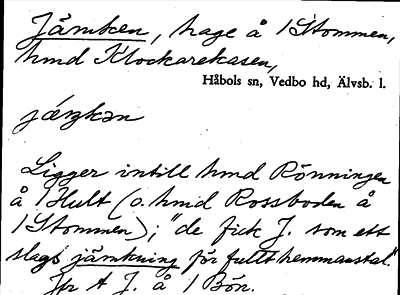 Jämken, hage å 1 Stommen,
hmd Klockarekasen,
Håbols sn, Vedbo hd, Älvsb. l.
Ligger intill hmd Rönningen
å 1 Hult (o. hmd Rossboden å
1 Stommen); "de fick J. som ett
slags jämkning för fullt hemmanstal."
Jfr A J. å 1 Bön.